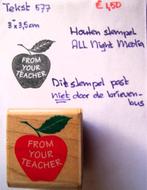 Tekst 577
€ 1,50
3" x 3,5cm
Houten stempel
ALL Night Media
FROM
YOUR
TEACHER
Dit stempel past
niet door de brieven-
bus
FROM
YOUR
TEACHER